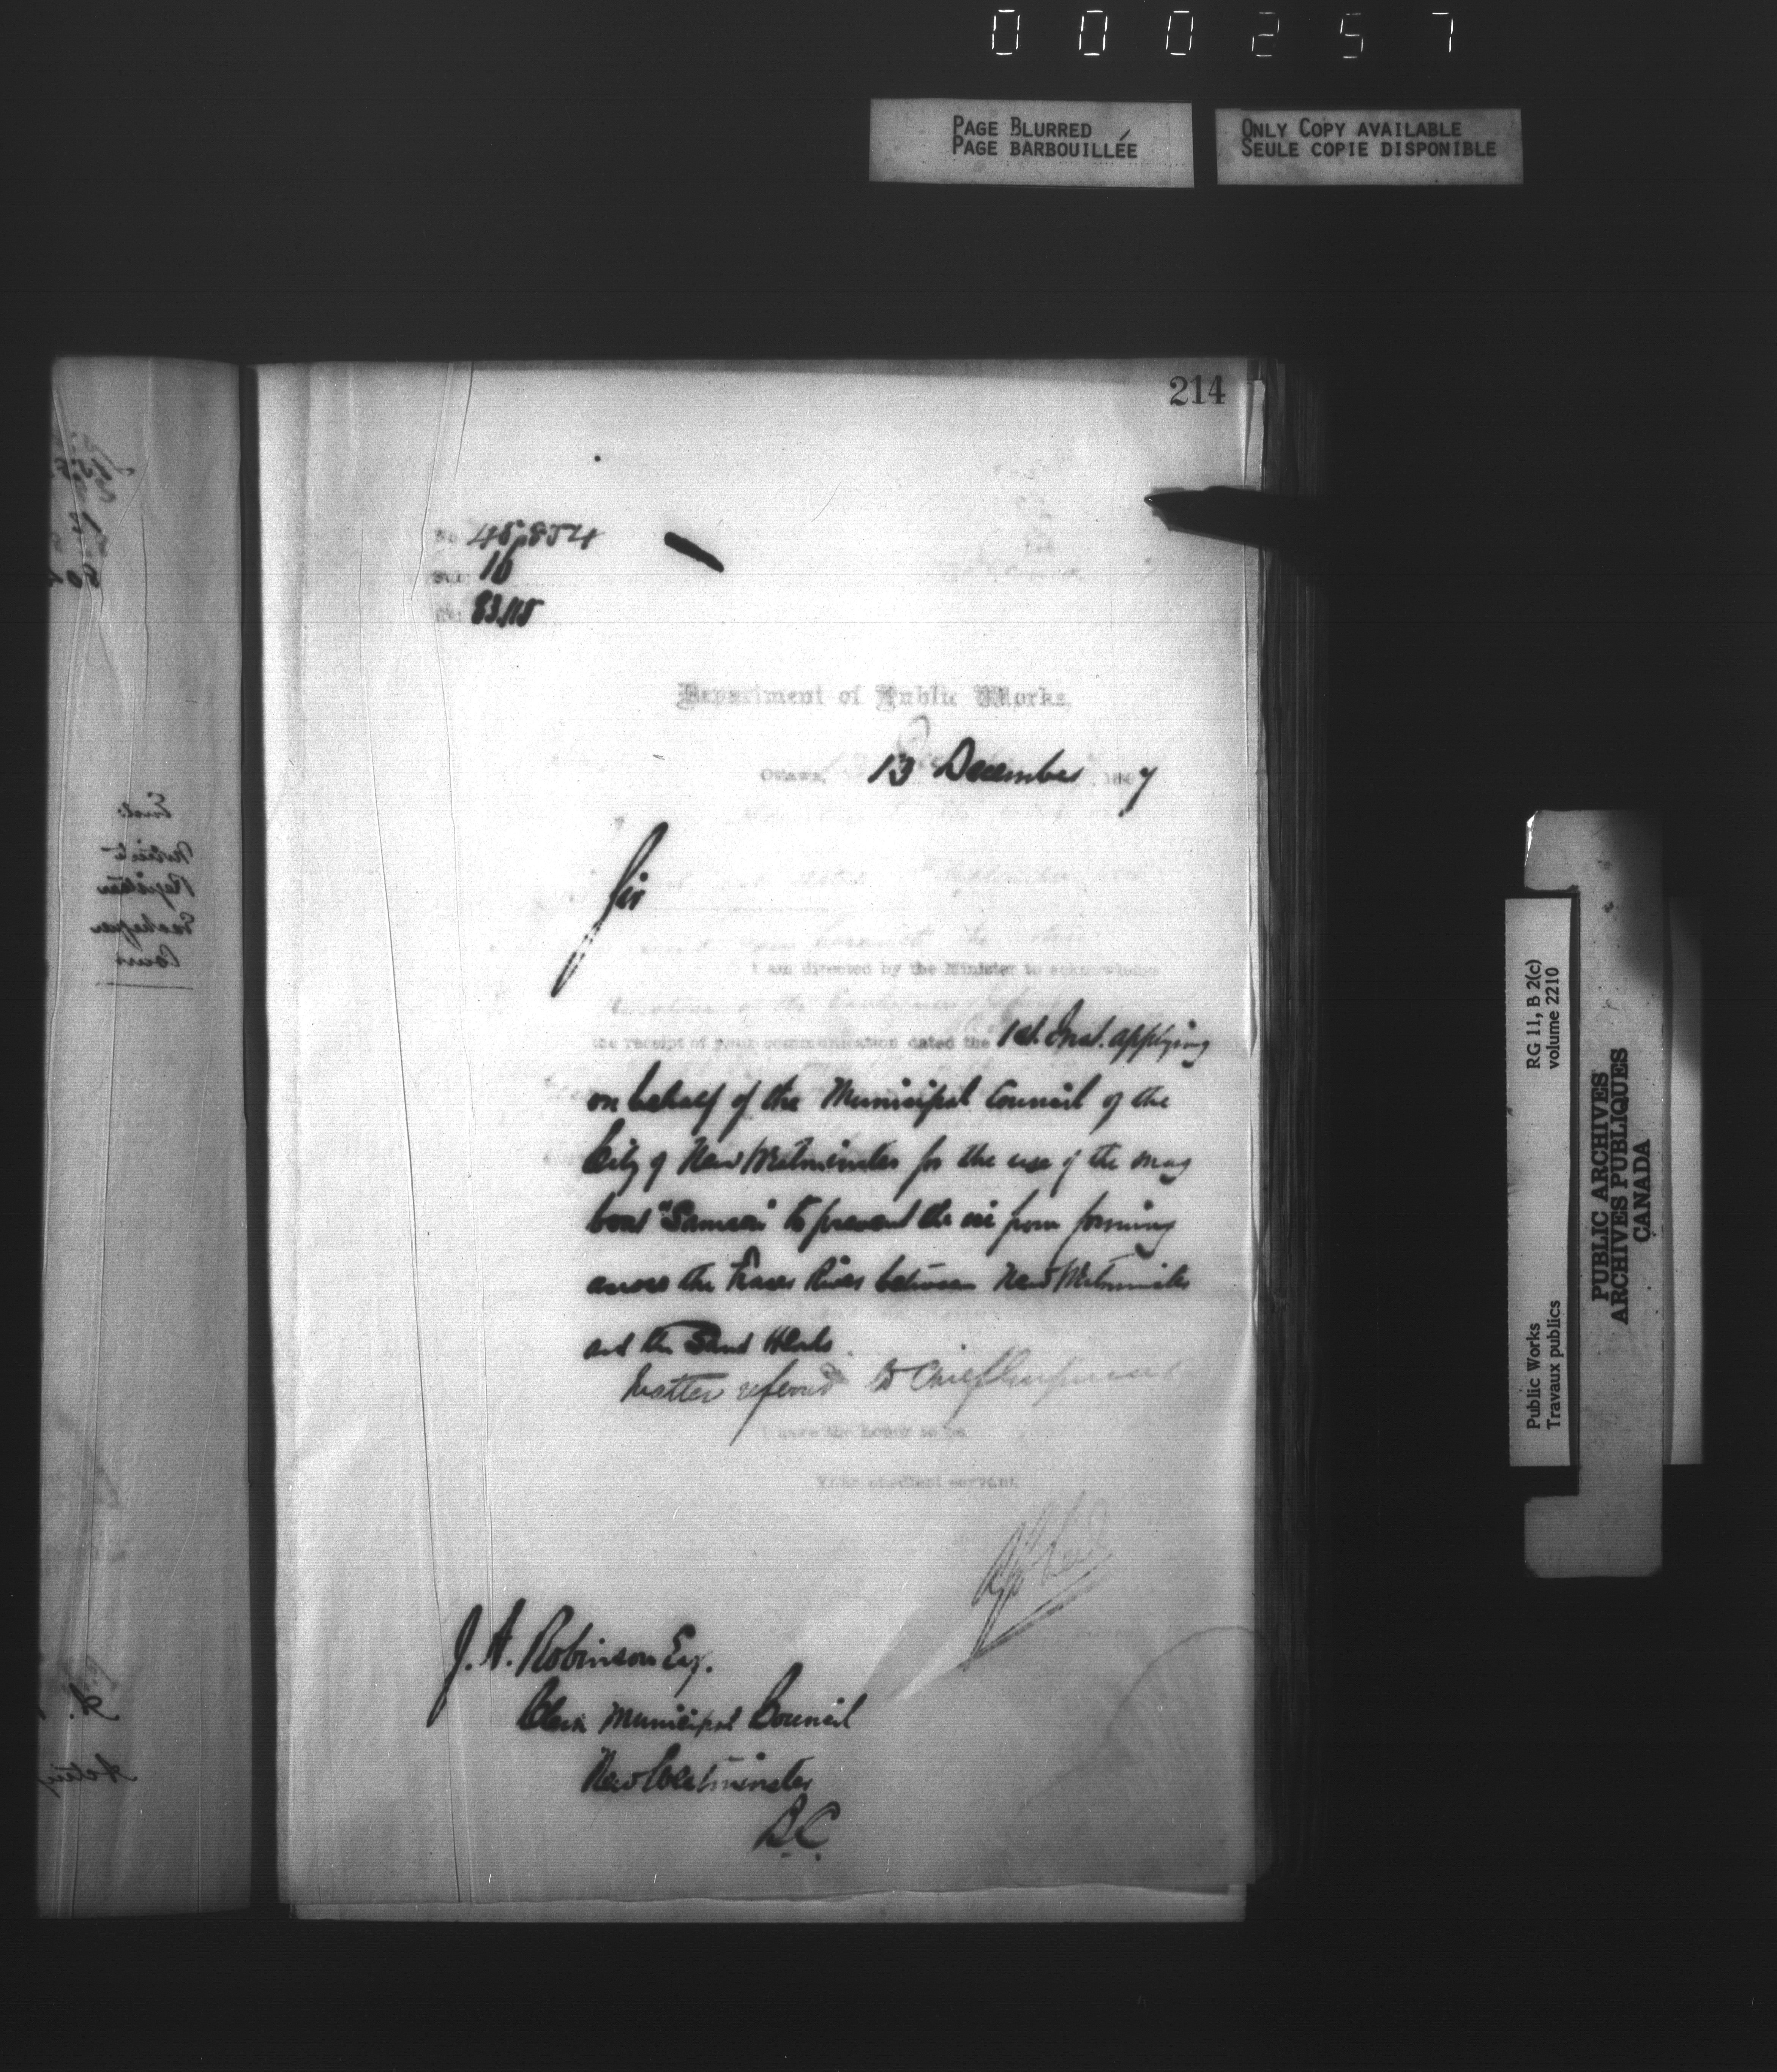 000257
PAGE BLURRED
PAGE BARBOUILLÉE
ONLY COPY AVAILABLE
SEULE COPIE DISPONIBLE
214
No. 45,854
16
83115
Department of Public Works,
Ottawa, 13 December 1887
Sir
I am directed by the Minister to acknowledge
the receipt of your communication dated the 1st. Inst. applying
on behalf of the Municipal Council of the
City of New Westminster for the use of the snag
boat "Samson" to prevent the ice from forming
across the Fraser River between New Westminster
and the Sand Heads.
Matter referred to Chief Engineer
I have the honor to be
Your obedient servant
J. A. Robinson Esq.
Clerk Municipal Council
New Westminster
B.C.
RG 11, B 2(c)
volume 2210
Public Works
Travaux publics
PUBLIC ARCHIVES
ARCHIVES PUBLIQUES
CANADA